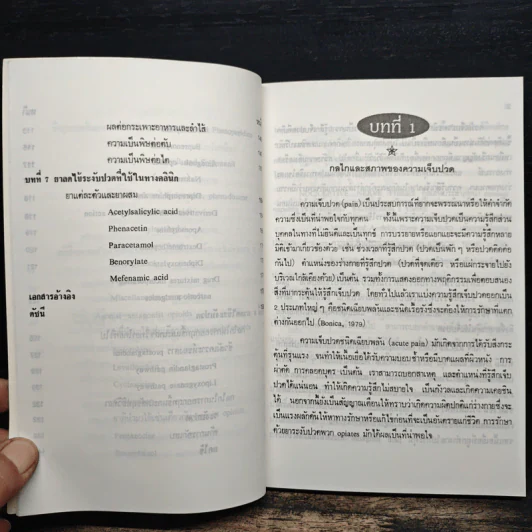 ผลต่อกระเพาะอาหารและลำไส้
ความเป็นพิษต่อตับ
ความเป็นพิษต่อไต
บทที่ 7 ยาลดไข้ระงับปวดที่ใช้ในทางคลินิก
ยาแต่ละตัวและยาผสม
Acetylsalicylic acid
Phenacetin
Paracetamol
Benorylate
Mefenamic acid
เอกสารอ้างอิง
ดัชนี
บทที่ 1
กลไกและสภาพของความเจ็บปวด
ความเจ็บปวด (pain) เป็นประสบการณ์ที่ยากจะพรรณนาหรือให้คำจำกัด
ความซึ่งเป็นที่น่าพอใจกับทุกคน ทั้งนี้เพราะความเจ็บปวดเป็นความรู้สึกส่วน
บุคคลในทางที่ไม่ยินดีและเป็นทุกข์ การบรรยายหรือแยกแยะจะมีความรู้สึกหลาย
มิติเข้ามาเกี่ยวข้องด้วย เช่น ช่วงเวลาที่รู้สึกปวด (ปวดเป็นพัก ๆ หรือปวดติดต่อ
กันไป) ตำแหน่งของร่างกายที่รู้สึกปวด (ปวดที่จุดเดียว หรือแผ่กระจายไปยัง
บริเวณใกล้เคียงด้วย) เป็นต้น รวมทั้งการแสดงออกทางพฤติกรรมเพื่อตอบสนอง
สิ่งที่มากระตุ้นให้รู้สึกเจ็บปวด โดยทั่วไปแล้วเราแบ่งความรู้สึกเจ็บปวดออกเป็น
2 ประเภทใหญ่ ๆ คือชนิดเฉียบพลันและชนิดเรื้อรังซึ่งจะต้องให้การรักษาที่แตก
ต่างกันออกไป (Bonica, 1979)
ความเจ็บปวดชนิดเฉียบพลัน (acute pain) มักเกิดจากการได้รับสิ่งกระ
ตุ้นที่รุนแรง จนทำให้เนื้อเยื่อได้รับความบอบช้ำหรือมีบาดแผลที่ผิวหนัง การ
ผ่าตัด การคลอดบุตร เป็นต้น เราสามารถบอกสาเหตุ และตำแหน่งที่รู้สึกเจ็บ
ปวดได้แน่นอน ทำให้เกิดความรู้สึกไม่สบายใจ เป็นกังวลและเกิดความเครียดขึ้น
ได้ นอกจากนี้ยังเป็นสัญญาณเตือนให้ทราบว่าเกิดความผิดปกติแก่ร่างกายซึ่งจะ
เป็นแรงผลักดันให้หาทางรักษาหรือแก้ไขก่อนที่จะเป็นอันตรายแก่ชีวิต การรักษา
ด้วยยาระงับปวดพวก opiates มักได้ผลเป็นที่น่าพอใจ